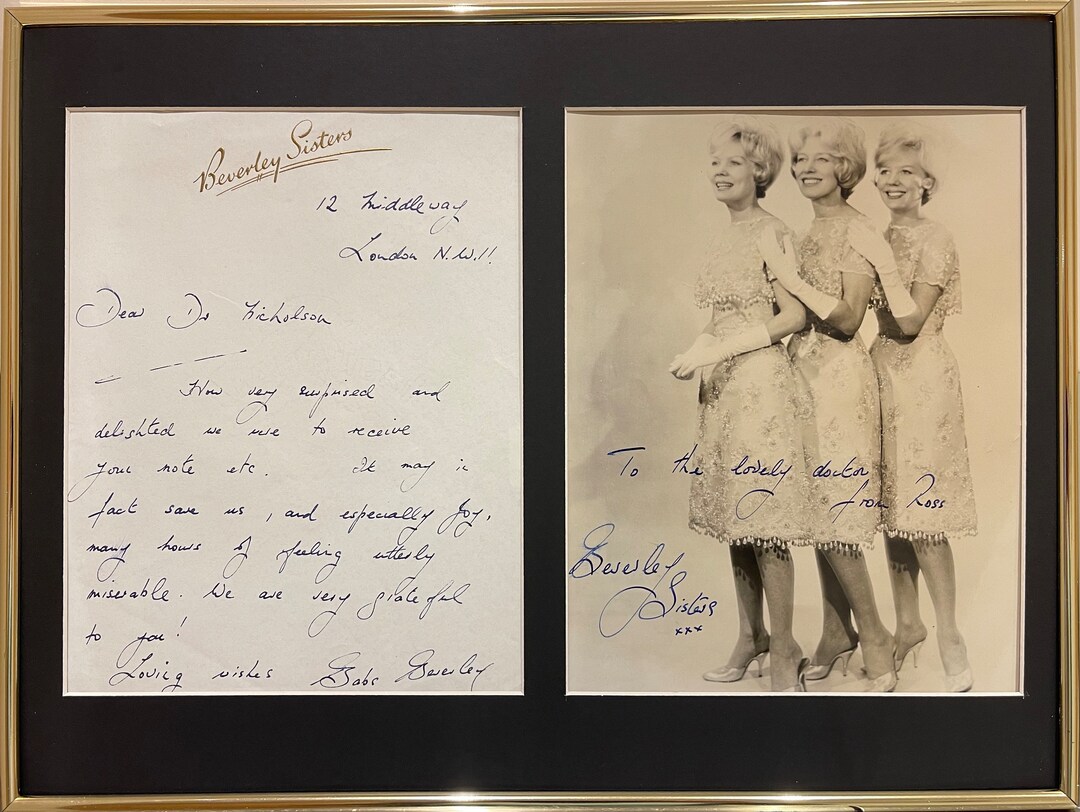 Beverley Sisters
12 Middleway
London N.W.11.
Dear Dr Nicholson
How very surprised and
delighted we were to receive
your note etc. It may in
fact save us, and especially Joy,
many hours of feeling utterly
miserable. We are very grateful
to you!
Loving wishes Babs Beverley
To the lovely doctor
from Ross
Beverley
Sisters
xxx